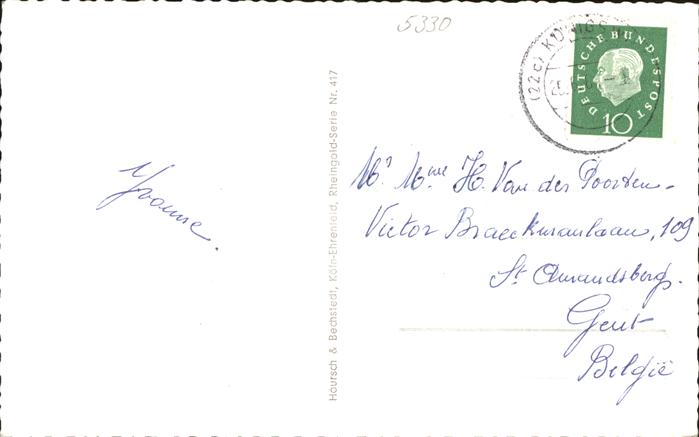 5330
(22c) KÖNIGS
DEUTSCHE BUNDESPOST
10
Yvonne.
Hoursch & Bechstedt, Köln-Ehrenfeld, Rheingold-Serie Nr. 417
Mr Mme H. Van der Poorten-
Victor Braeckmanlaan, 109
St Amandsberg.
Gent
België